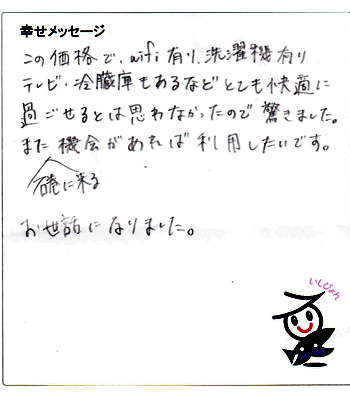 幸せメッセージ
この価格で、wifi有り、洗濯機有り
テレビ・冷蔵庫もあるなどとても快適に
過ごせるとは思わなかったので驚きました。
また機会があれば利用したいです。
お世話になりました。
いしじょん